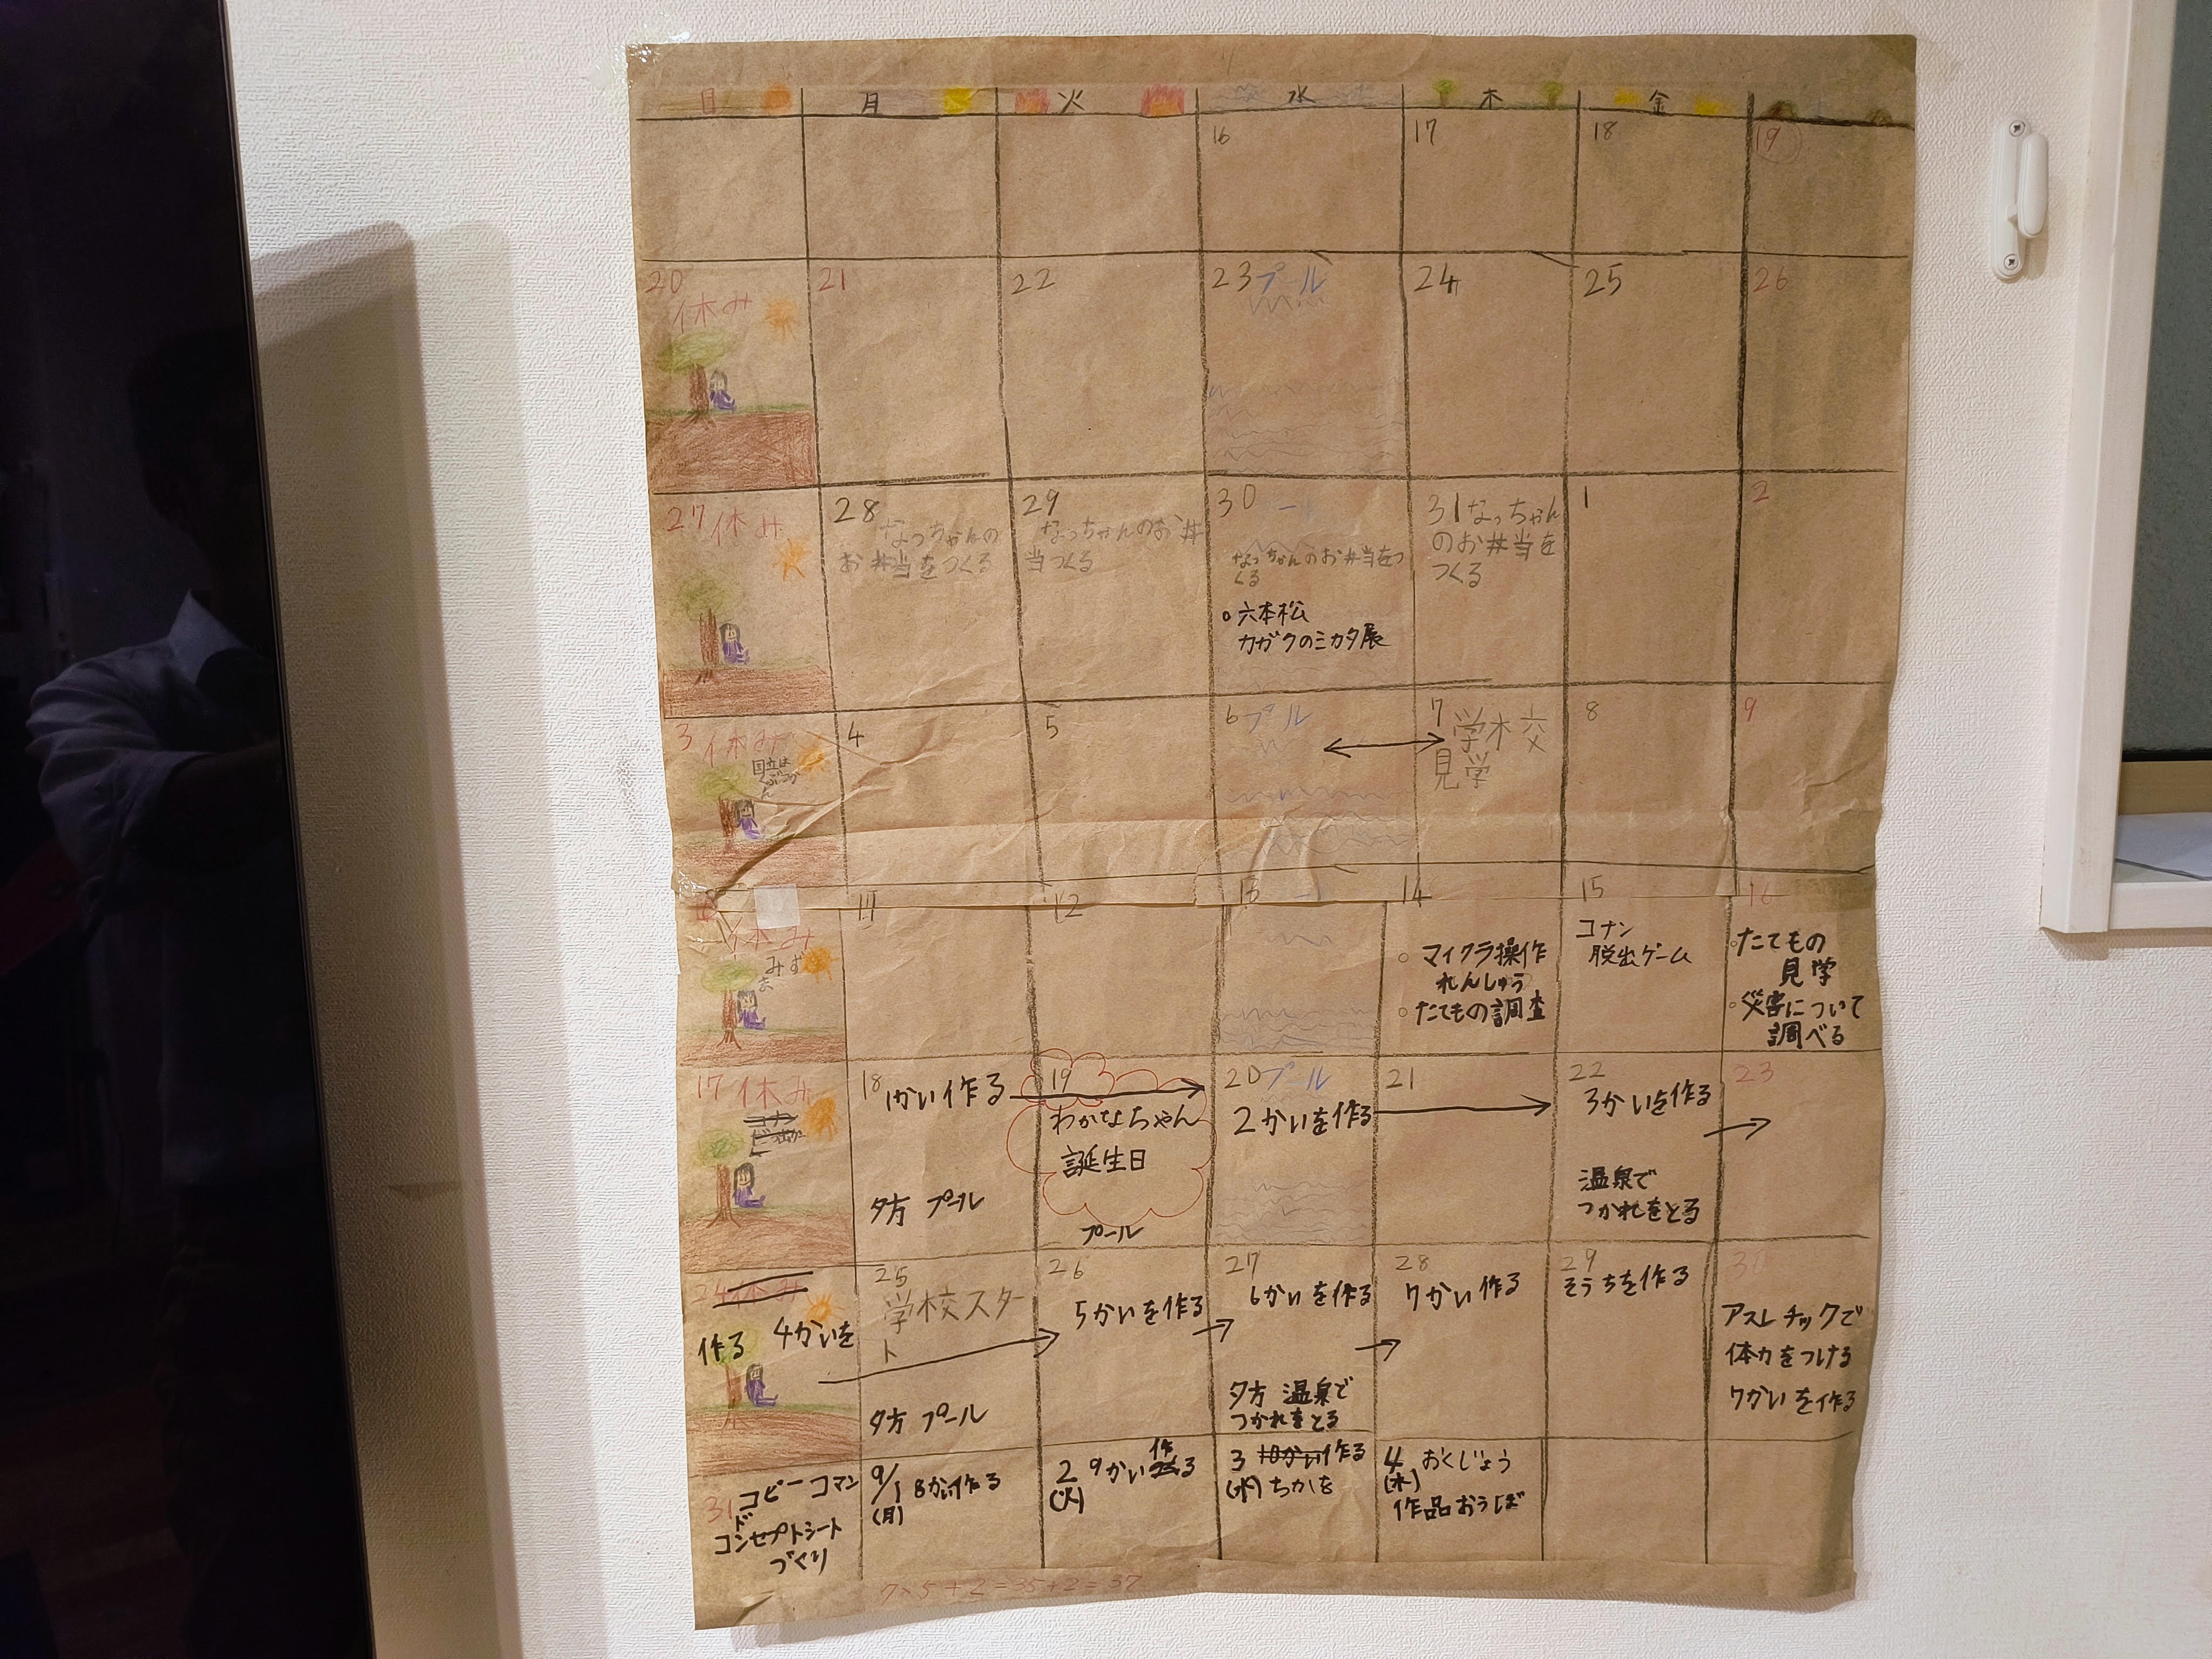 日 月 火 水 木 金
16 17 18 19
20
休み
21 22 23 プール 24 25 26
27 休み
28
なっちゃんの
お弁当をつくる
29
なっちゃんのお弁
当つくる
30 ール
なっちゃんのお弁当をつ
くる
○六本松
カガクのミカタ展
31 なっちゃん
のお弁当を
つくる
1 2
3 休み
4 5 6 プール
7 学校
見学
8 9
休み
みず
11 12 13
14
○ マイクラ操作
れんしゅう
○ たてもの調査
15
コナン
脱出ゲーム
16
○たてもの
見学
○災害について
調べる
17 休み
18 1かい作る
夕方 プール
19
わかなちゃん
誕生日
プール
20 プール
2かいを作る
21
22
3かいを作る
温泉で
つかれをとる
23
24 休み
作る 4かいを
25
学校スター
ト
夕方 プール
26
5かいを作る
27
6かいを作る
夕方 温泉で
つかれをとる
28
7かい作る
29
そうちを作る
アスレチックで
体力をつける
7かいを作る
31 コピーコマン
ド
コンセプトシート
づくり
9/1 8かい作る
(月)
2 9かい作る
(火)
3 10かい作る
(水) ちかを
4 おくじょう
(木)
作品おうぼ
7×5+2=35+2=37